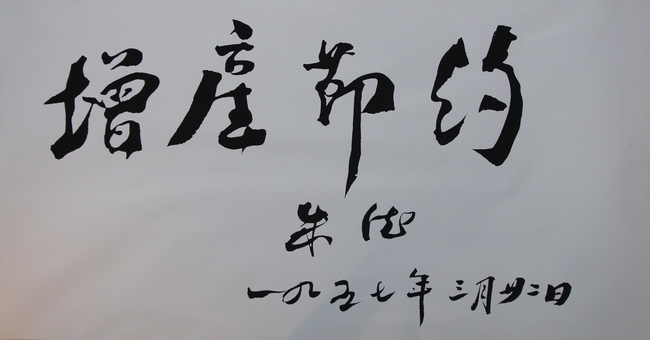 增產節约
朱德
一九五七年三月廿二日